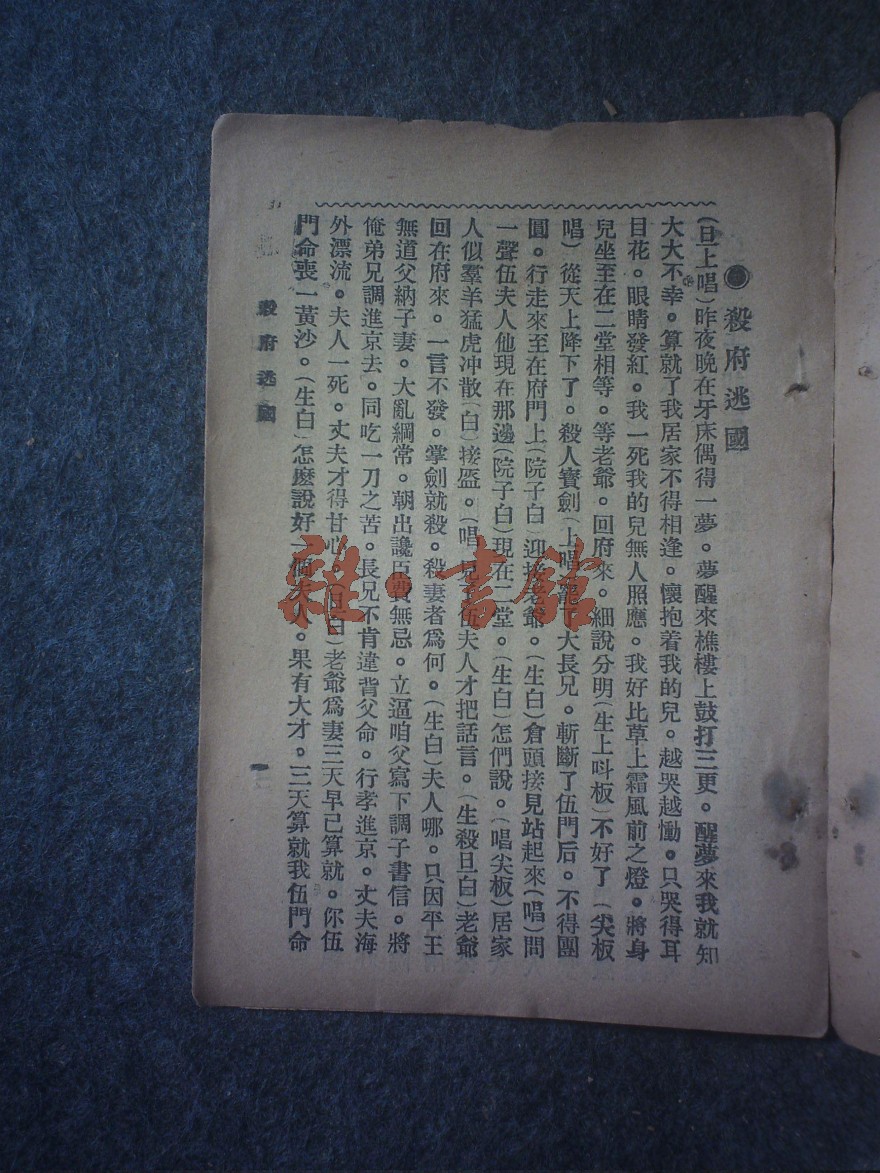 ●殺府逃國
(旦上唱)昨夜晚在牙床偶得一夢。夢醒來樵樓上鼓打三更。醒夢來我就知
大大不幸。算就了我居家不得相逢。懷抱着我的兒。越哭越慟。只哭得耳
目花。眼睛發紅。我一死我的兒無人照應。我好比草上霜風前之燈。將身
兒坐至在二堂相等。等老爺。回府來。細說分明(生上呌板)不好了(尖板
唱)從天上降下了。殺人寶劍(上唱 下大長兄。斬斷了伍門后。不得團
圓。行走來至在府門上(院子白 迎接老爺。(生白)倉頭接見站起來(唱)問
一聲伍夫人他現在那邊(院子白)現在二堂。(生白)怎們說。(唱尖板)居家
人似羣羊猛虎冲散(白)接盔。(唱 見伍夫人才把話言。(生殺旦白)老爺
回在府來。一言不發。掌劍就殺。殺妻者爲何。(生白)夫人哪。只因平王
無道父納子妻。大亂綱常。朝出讒臣費無忌。立逼咱父寫下調子書信。將
俺弟兄調進京去。同吃一刀之苦。長兄不肯違背父命。行孝進京。丈夫海
外漂流。夫人一死。丈夫才得甘心。(旦白)老爺爲妻三天早已算就。你伍
門命喪一黃沙。(生白)怎麽說好一個夫人。果有大才。三天算就我伍門命
殺府逃國
一
31
雜·書館